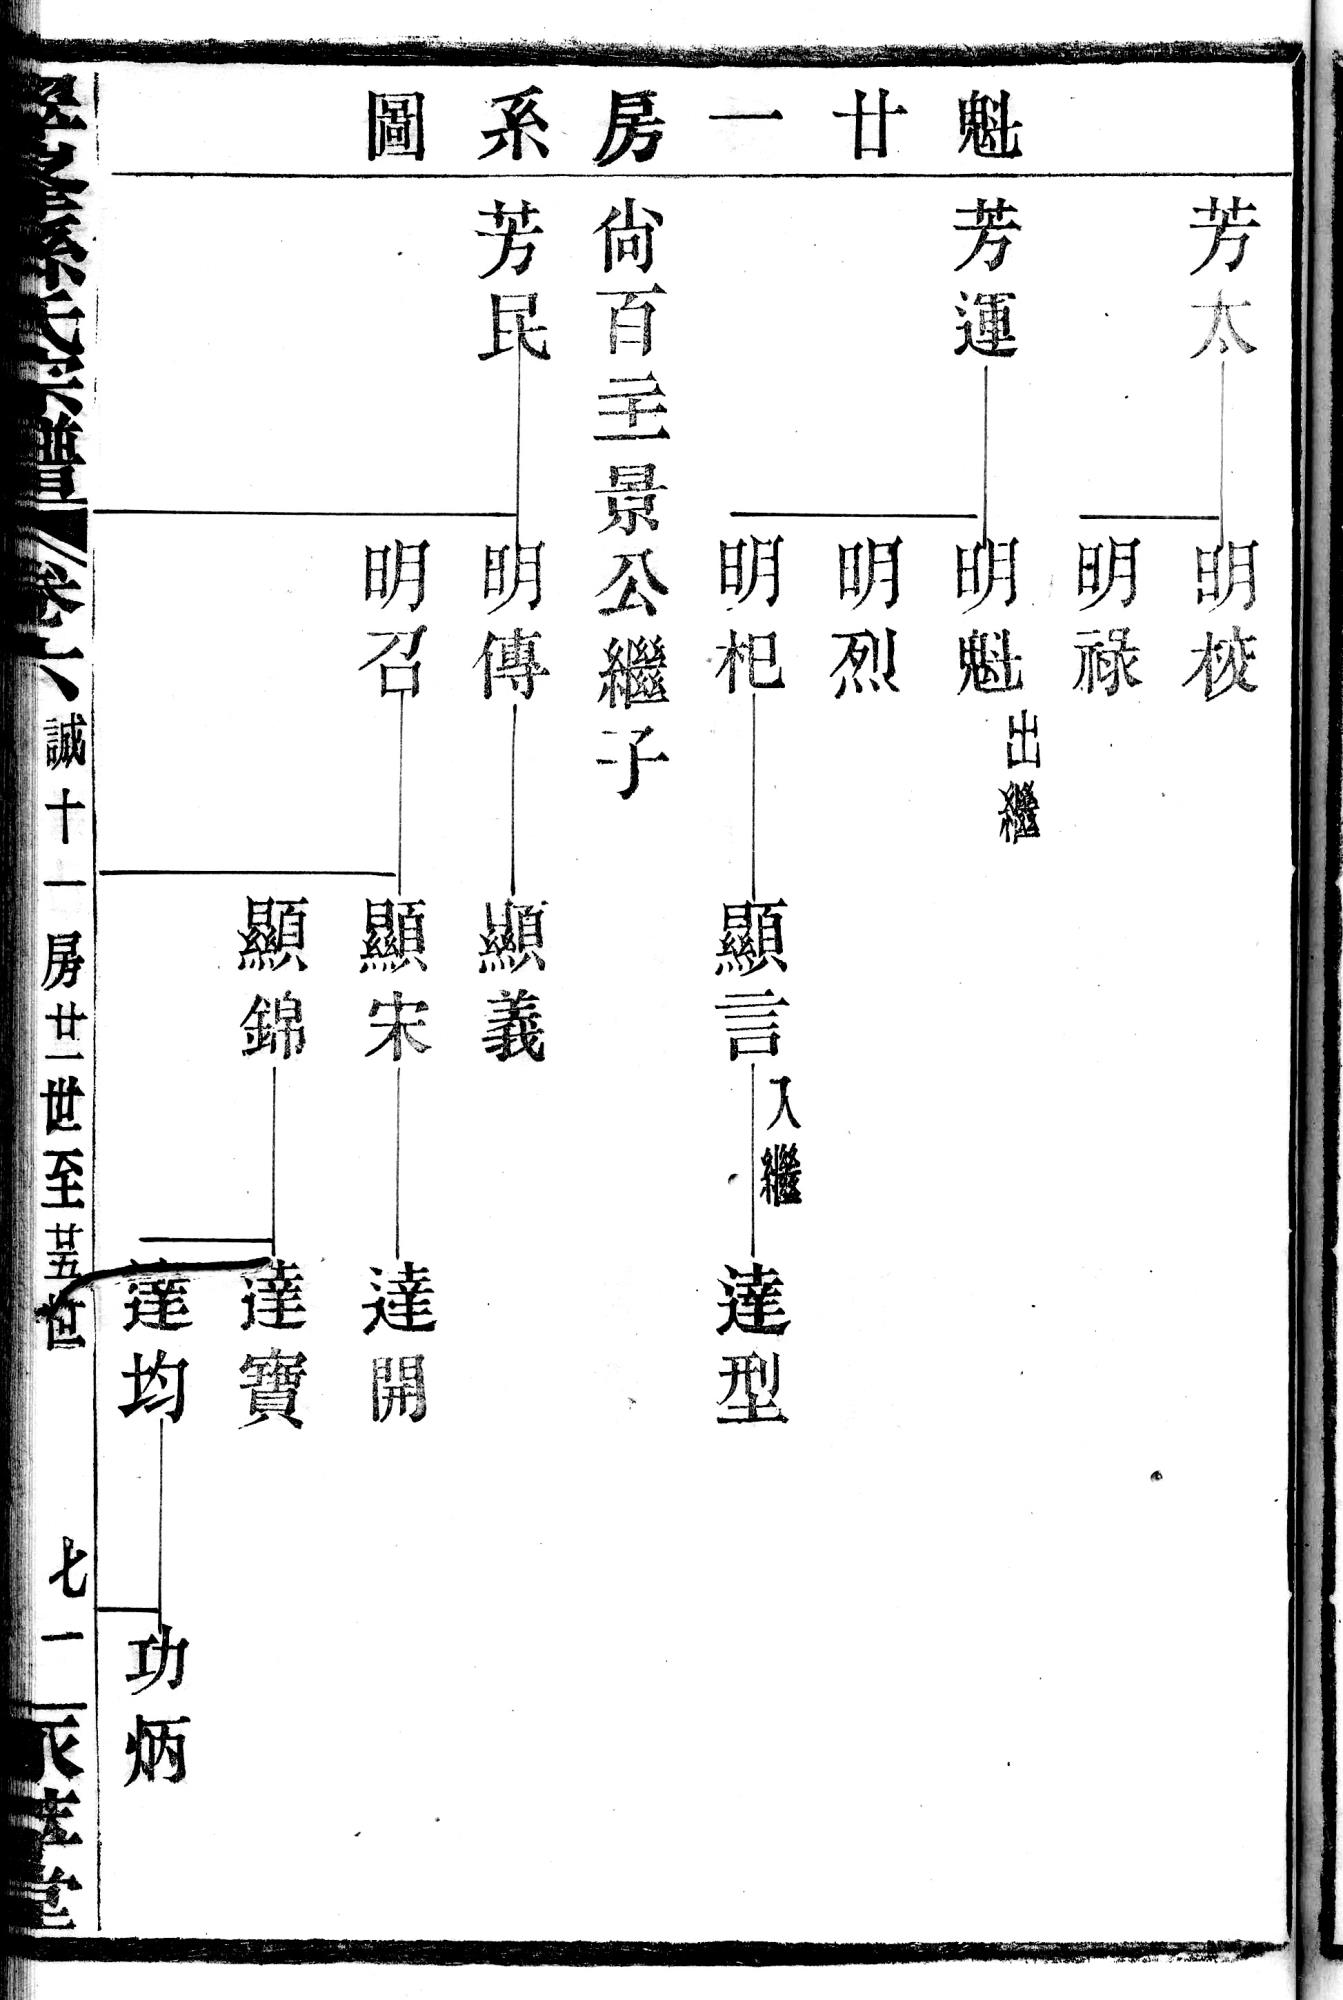 魁廿一房系圖
芳太 明棱
明祿
芳運 明魁 出繼
明烈
明杞 顯言 入繼 達型
尙百二十一景公繼子
芳民 明傳 顯義
明召 顯宋 達開
顯錦 達寶
達均 功炳
孫氏宗譜 卷六 誠十一房廿一世至廿五世 七一 堂